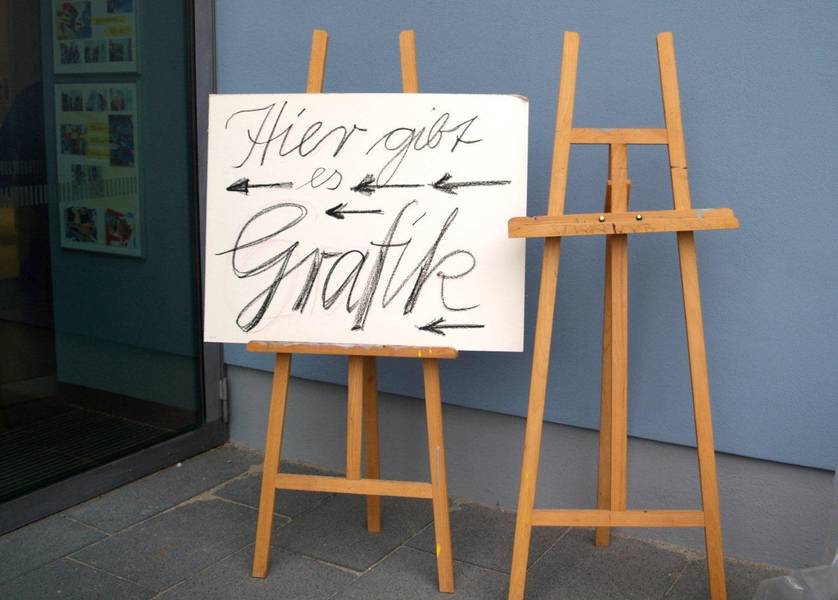 Hier gibt
es
Grafik